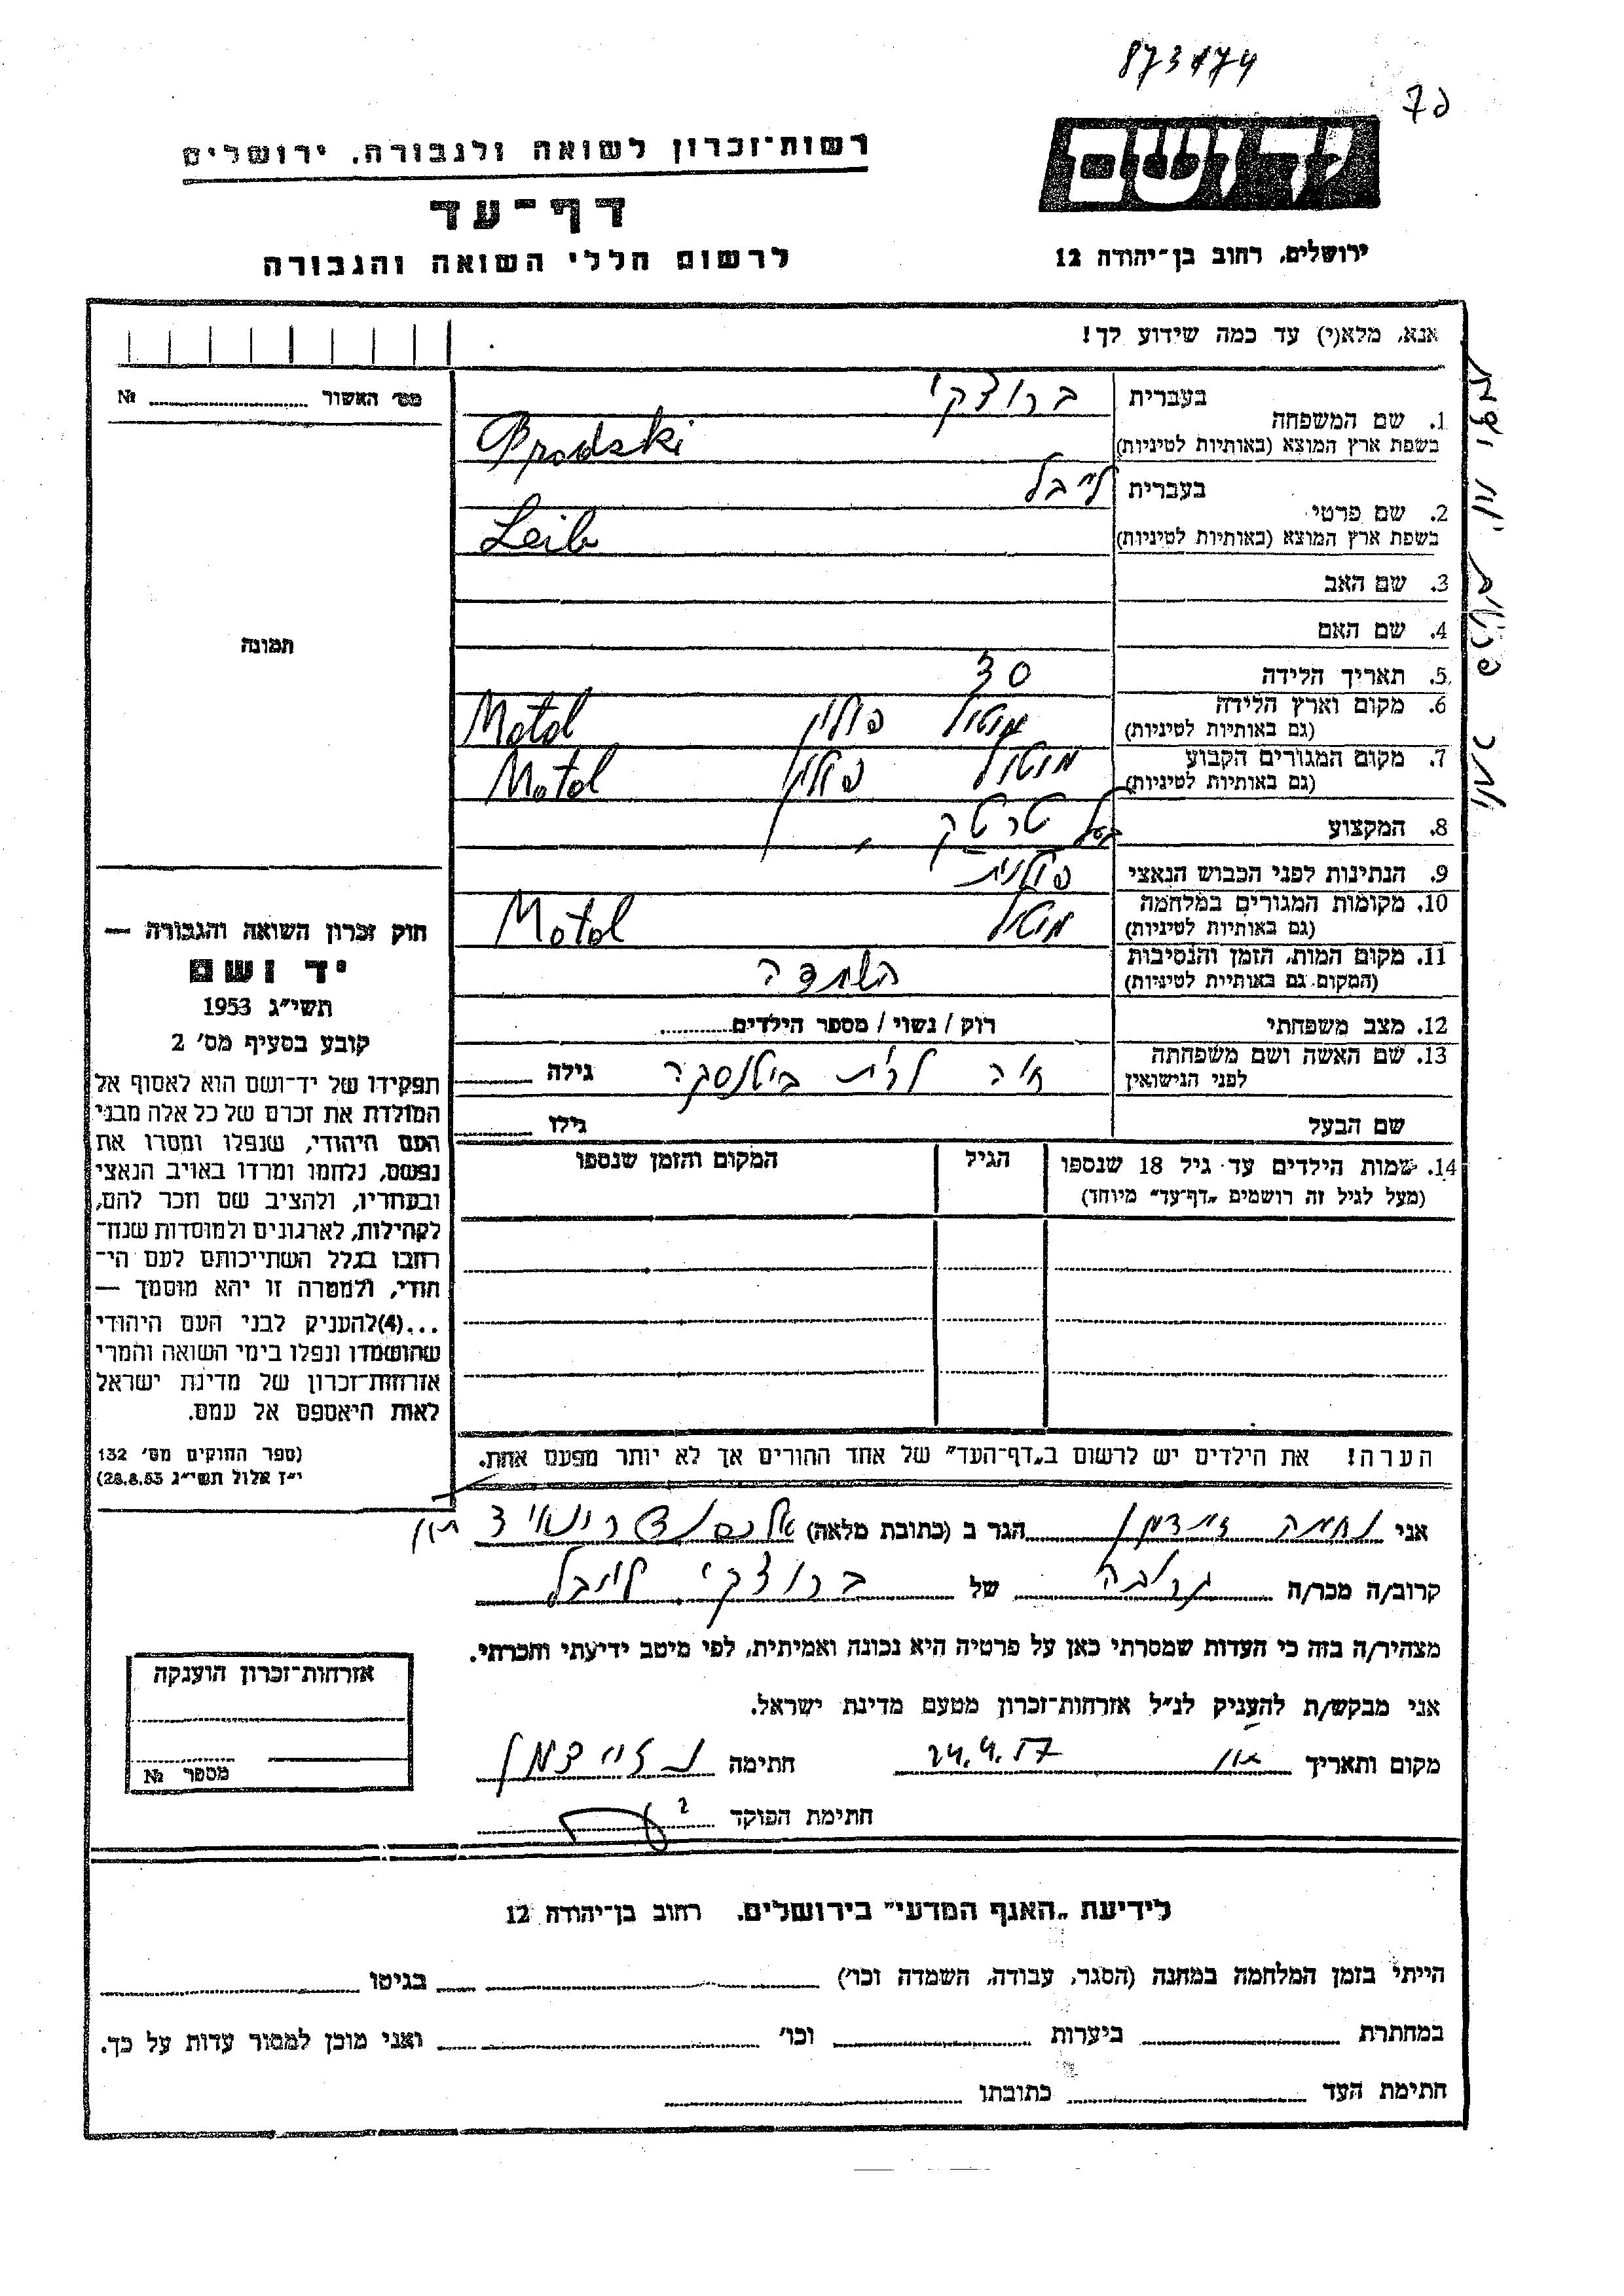 873474
ד7
רשות־זכרון לשואה ולגבורה, ירושלים
דף־עד
לרשום חללי השואה והגבורה
יד ושם
ירושלים, רחוב בן־יהודה 12
אנא, מלא(י) עד כמה שידוע לך!
מס׳ האשור № ........
1. שם המשפחה
בעברית ברודצקי
בשפת ארץ המוצא (באותיות לטיניות) Brodski
2. שם פרטי
בעברית לייבל
בשפת ארץ המוצא (באותיות לטיניות) Leib
3. שם האב
4. שם האם
5. תאריך הלידה 30
6. מקום וארץ הלידה
(גם באותיות לטיניות) מוטול פולין Motol
7. מקום המגורים הקבוע
(גם באותיות לטיניות) מוטול פולין Motol
8. המקצוע בעל טרטק
9. הנתינות לפני הכבוש הנאצי פולנית
10. מקומות המגורים במלחמה
(גם באותיות לטיניות) מוטול Motol
11. מקום המות, הזמן והנסיבות
(המקום גם באותיות לטיניות) השמדה
12. מצב משפחתי רוק / נשוי / מספר הילדים........
13. שם האשה ושם משפחתה
לפני הנישואין חיה לבית גילה
שם הבעל גילו
14. שמות הילדים עד גיל 18 שנספו הגיל המקום והזמן שנספו
(מעל לגיל זה רושמים „דף־עד״ מיוחד)
הערה! את הילדים יש לרשום ב„דף־העד״ של אחד ההורים אך לא יותר מפעם אחת.
תמונה
חוק זכרון השואה והגבורה —
יד ושם
תשי״ג 1953
קובע בסעיף מס׳ 2
תפקידו של יד־ושם הוא לאסוף אל
המולדת את זכרם של כל אלה מבני
העם היהודי, שנפלו ומסרו את
נפשם, נלחמו ומרדו באויב הנאצי
ובעוזריו, ולהציב שם וזכר להם,
לקהילות, לארגונים ולמוסדות שנח־
רחבו בגלל השתייכותם לעם הי־
הודי, ולמטרה זו יהא מוסמך —
...(4)להעניק לבני העם היהודי
שהושמדו ונפלו בימי השואה והמרי
אזרחות־זכרון של מדינת ישראל
לאות היאספם אל עמם.
(ספר החוקים מס׳ 132
י״ז אלול תשי״ג 28.8.53)
אני נחמה זיידמן הגר ב (כתובת מלאה)
קרוב/ה מכר/ה קרובה של ברודצקי לייבל
מצהיר/ה בזה כי העדות שמסרתי כאן על פרטיה היא נכונה ואמיתית, לפי מיטב ידיעתי והכרתי.
אני מבקש/ת להעניק לנ״ל אזרחות־זכרון מטעם מדינת ישראל.
מקום ותאריך 24.4.57 חתימה נ זיידמן
חתימת הפוקד
אזרחות־זכרון הוענקה
מספר №
לידיעת „האגף המדעי״ בירושלים, רחוב בן־יהודה 12
הייתי בזמן המלחמה במחנה (הסגר, עבודה, השמדה וכו׳) בגיטו
במחתרת ביערות וכו׳ ואני מוכן למסור עדות על כך.
חתימת העד כתובתו